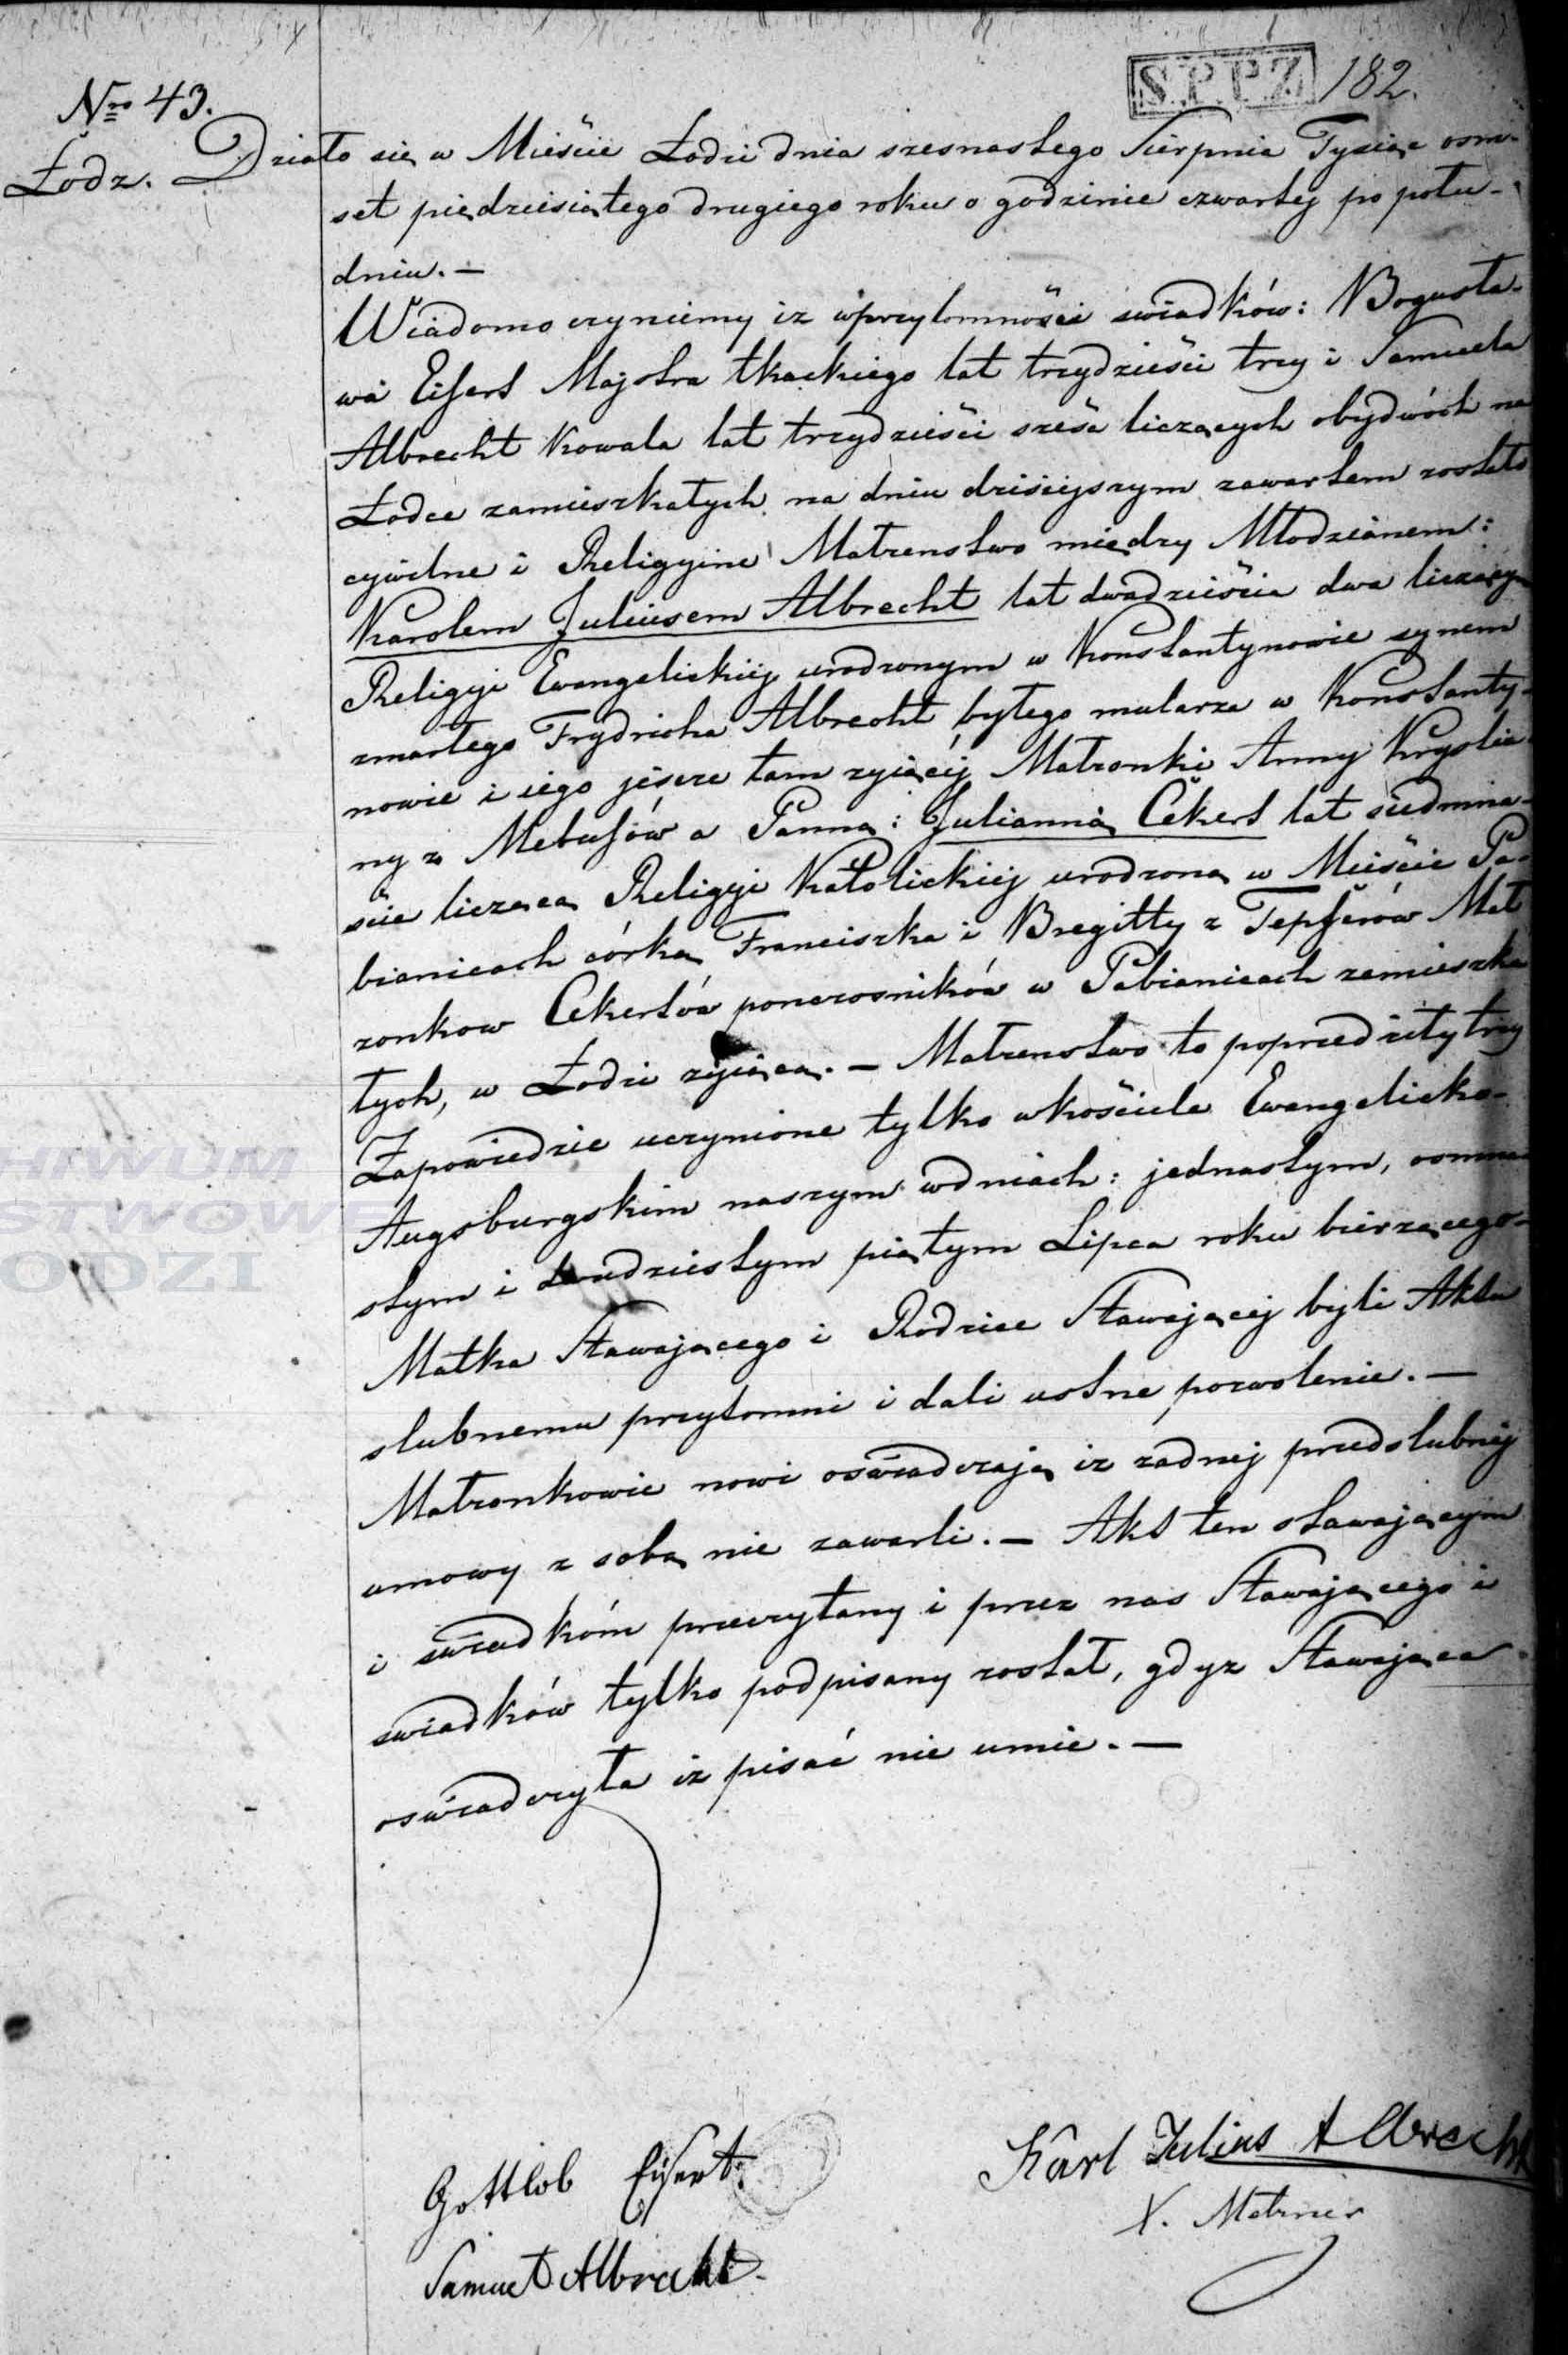 S.P.P.Z. 182.
Nro 43.
Łodz. Działo się w Mieście Łodzi dnia szesnastego Sierpnia Tysiąc osm-
set piędziesiątego drugiego roku o godzinie czwartej po połu-
dniu. —
Wiadomo czyniemy iz wprzytomności swiadków: Bogusła-
wa Eisert Majstra tkackiego lat trzydzieści trzy i Samuela
Albrecht Kowala lat trzydzieści sześć liczących obydwóch na
Łodce zamieszkałych na dniu dzisiejszym zawartem zostało
cywilne i Religyine Małzenstwo między Młodzianem:
Karolem Juliusem Albrecht lat dwadzieścia dwa liczącym
Religyi Ewangelickiej urodzonym w Konstantynowie synem
zmarłego Frydricha Albrecht byłego mularza w Konstanty-
nowie i iego jescze tam zyiącéj Małzonki Anny Krystia-
ny z Mebusów a Panną: Julianną Ckert lat siedmna-
ście licząca Religyi Katolickiej urodzoną w Mieście Pa-
bianicach córką Franciszka i Bregitty z Tepferów Mał
zonkow Ckertów ponczosników w Pabianicach zamieszka
łych, w Łodzi zyiącą. — Małzenstwo to poprzedziły trzy
Zapowiedzie uczynione tylko wkościele Ewangelicko-
Augsburgskim naszym wdniach: jednastym, osmna-
stym i dwudziestym piątym Lipca roku bierzącego-
Matka Stawającego i Rodzice Stawającej byli Aktu
slubnemu przytomni i dali ustne pozwolenie. —
Małzonkowie nowi oswiadczają iz zadnej przedslubnej
umowy z sobą nie zawarli. — Akt ten stawającym
i swiadkóm przeczytany i przez nas Stawającego i
swiadków tylko podpisany został, gdyz Stawająca
oswiadczyła iz pisać nie umie. —
Gottlob Eisert.
Karl Julius Albrecht
Samuel Albrecht.
X. Metzner
ODZI